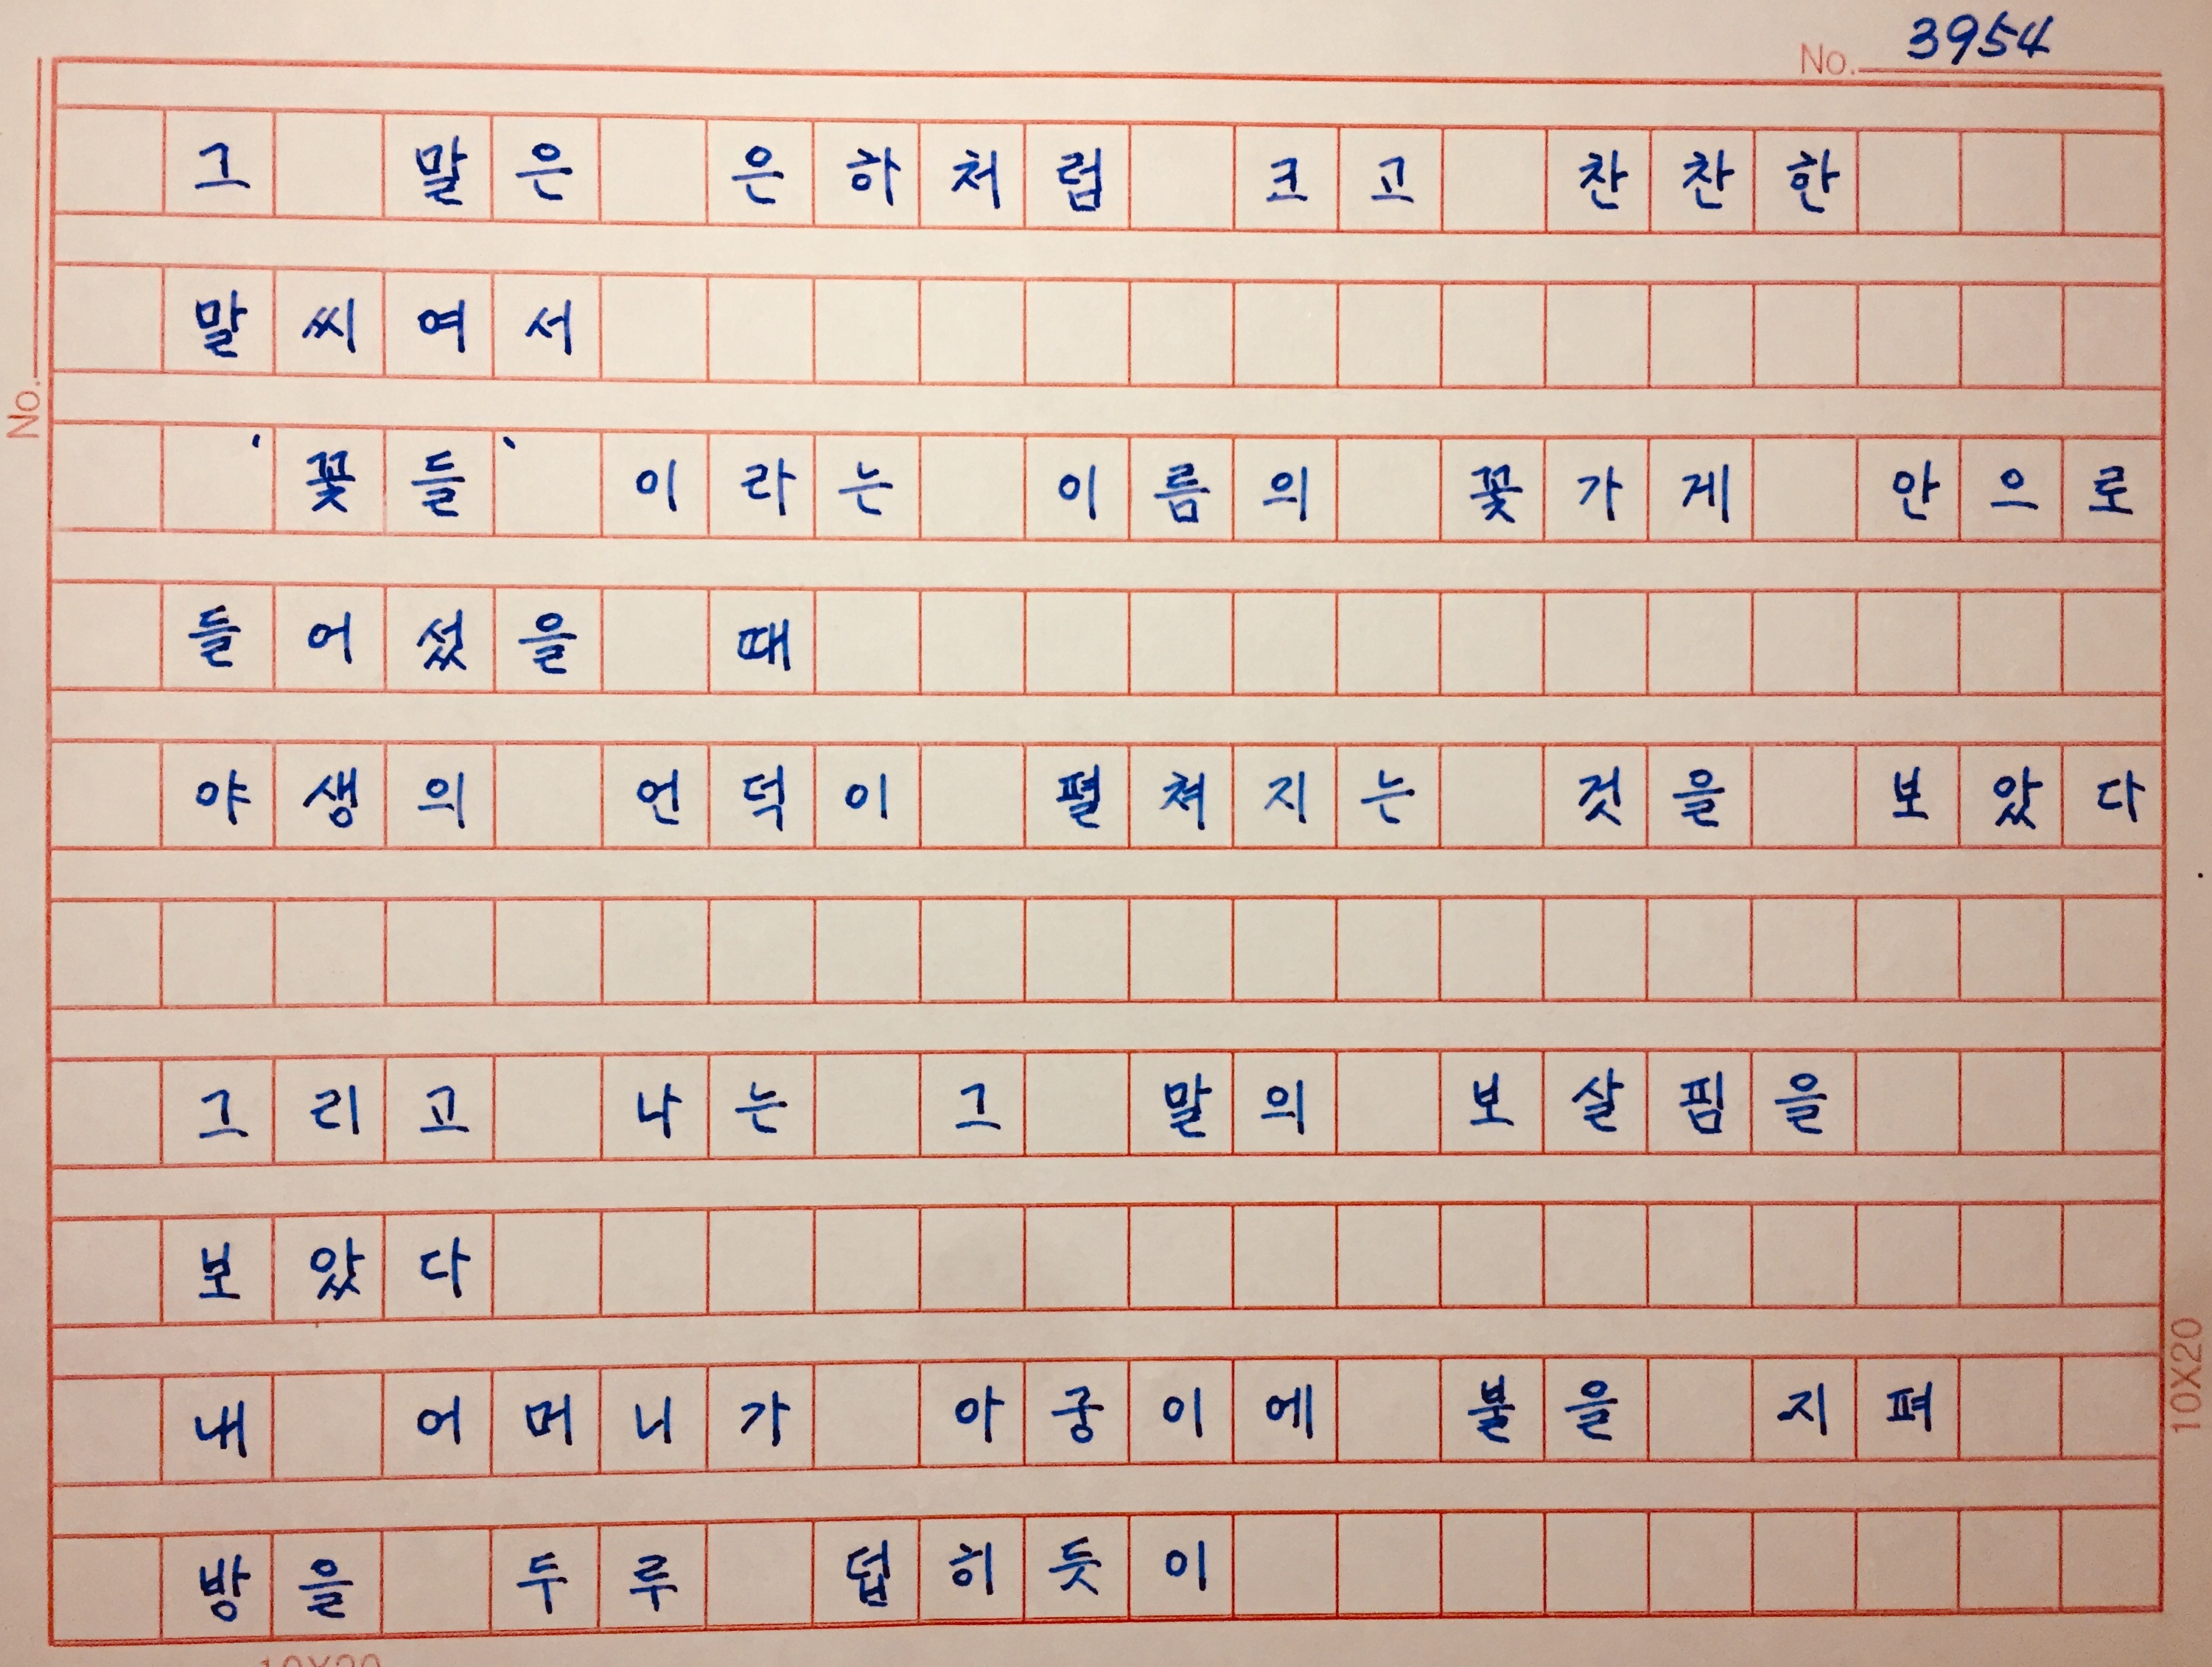 No. 3954
그 말은 은하처럼 크고 찬찬한
말씨여서
‘꽃들’이라는 이름의 꽃가게 안으로
들어섰을 때
야생의 언덕이 펼쳐지는 것을 보았다
그리고 나는 그 말의 보살핌을
보았다
내 어머니가 아궁이에 불을 지펴
방을 두루 덥히듯이
No.
10X20
10X20